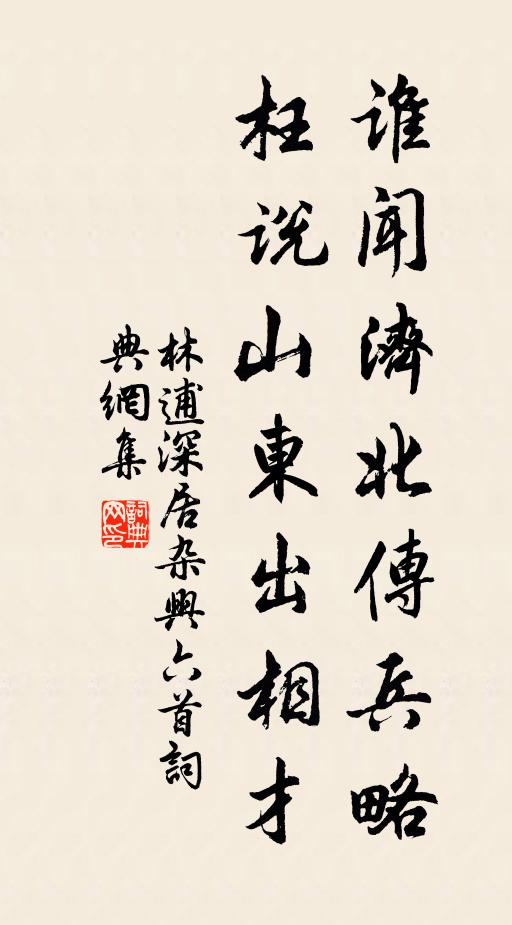 谁闻濟北傳兵略
枉说山東出相才
林逋深居杂興六首詞
典網集
詞典
网印